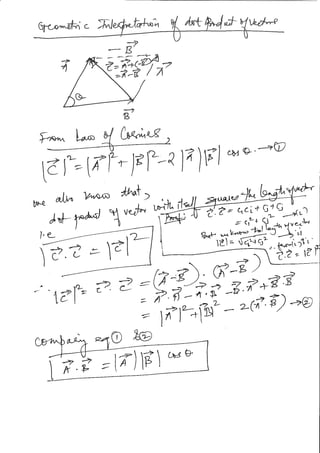 Geometric Interpretation of dot Product of vectors
- B⃗
A⃗
C⃗ = A⃗+(-B⃗)
= A⃗-B⃗
A⃗
θ
B⃗
From Law of Cosines,
|C⃗|² = |A⃗|² + |B⃗|² - 2 |A⃗| |B⃗| cos θ. → ①
we also know that,
dot product of vector with itself squares the length of vector
i.e
C⃗.C⃗ = |C⃗|²
Proof:
But we know that length of vector is
C⃗.C⃗ = |C⃗|²
∴ |C⃗|² = C⃗.C⃗ = (A⃗-B⃗).(A⃗-B⃗)
= A⃗.A⃗ - A⃗.B⃗ - B⃗.A⃗ + B⃗.B⃗
= |A⃗|² + |B⃗|² - 2(A⃗.B⃗) → ②
Comparing eq ① & ②
A⃗.B⃗ = |A⃗| |B⃗| cos θ